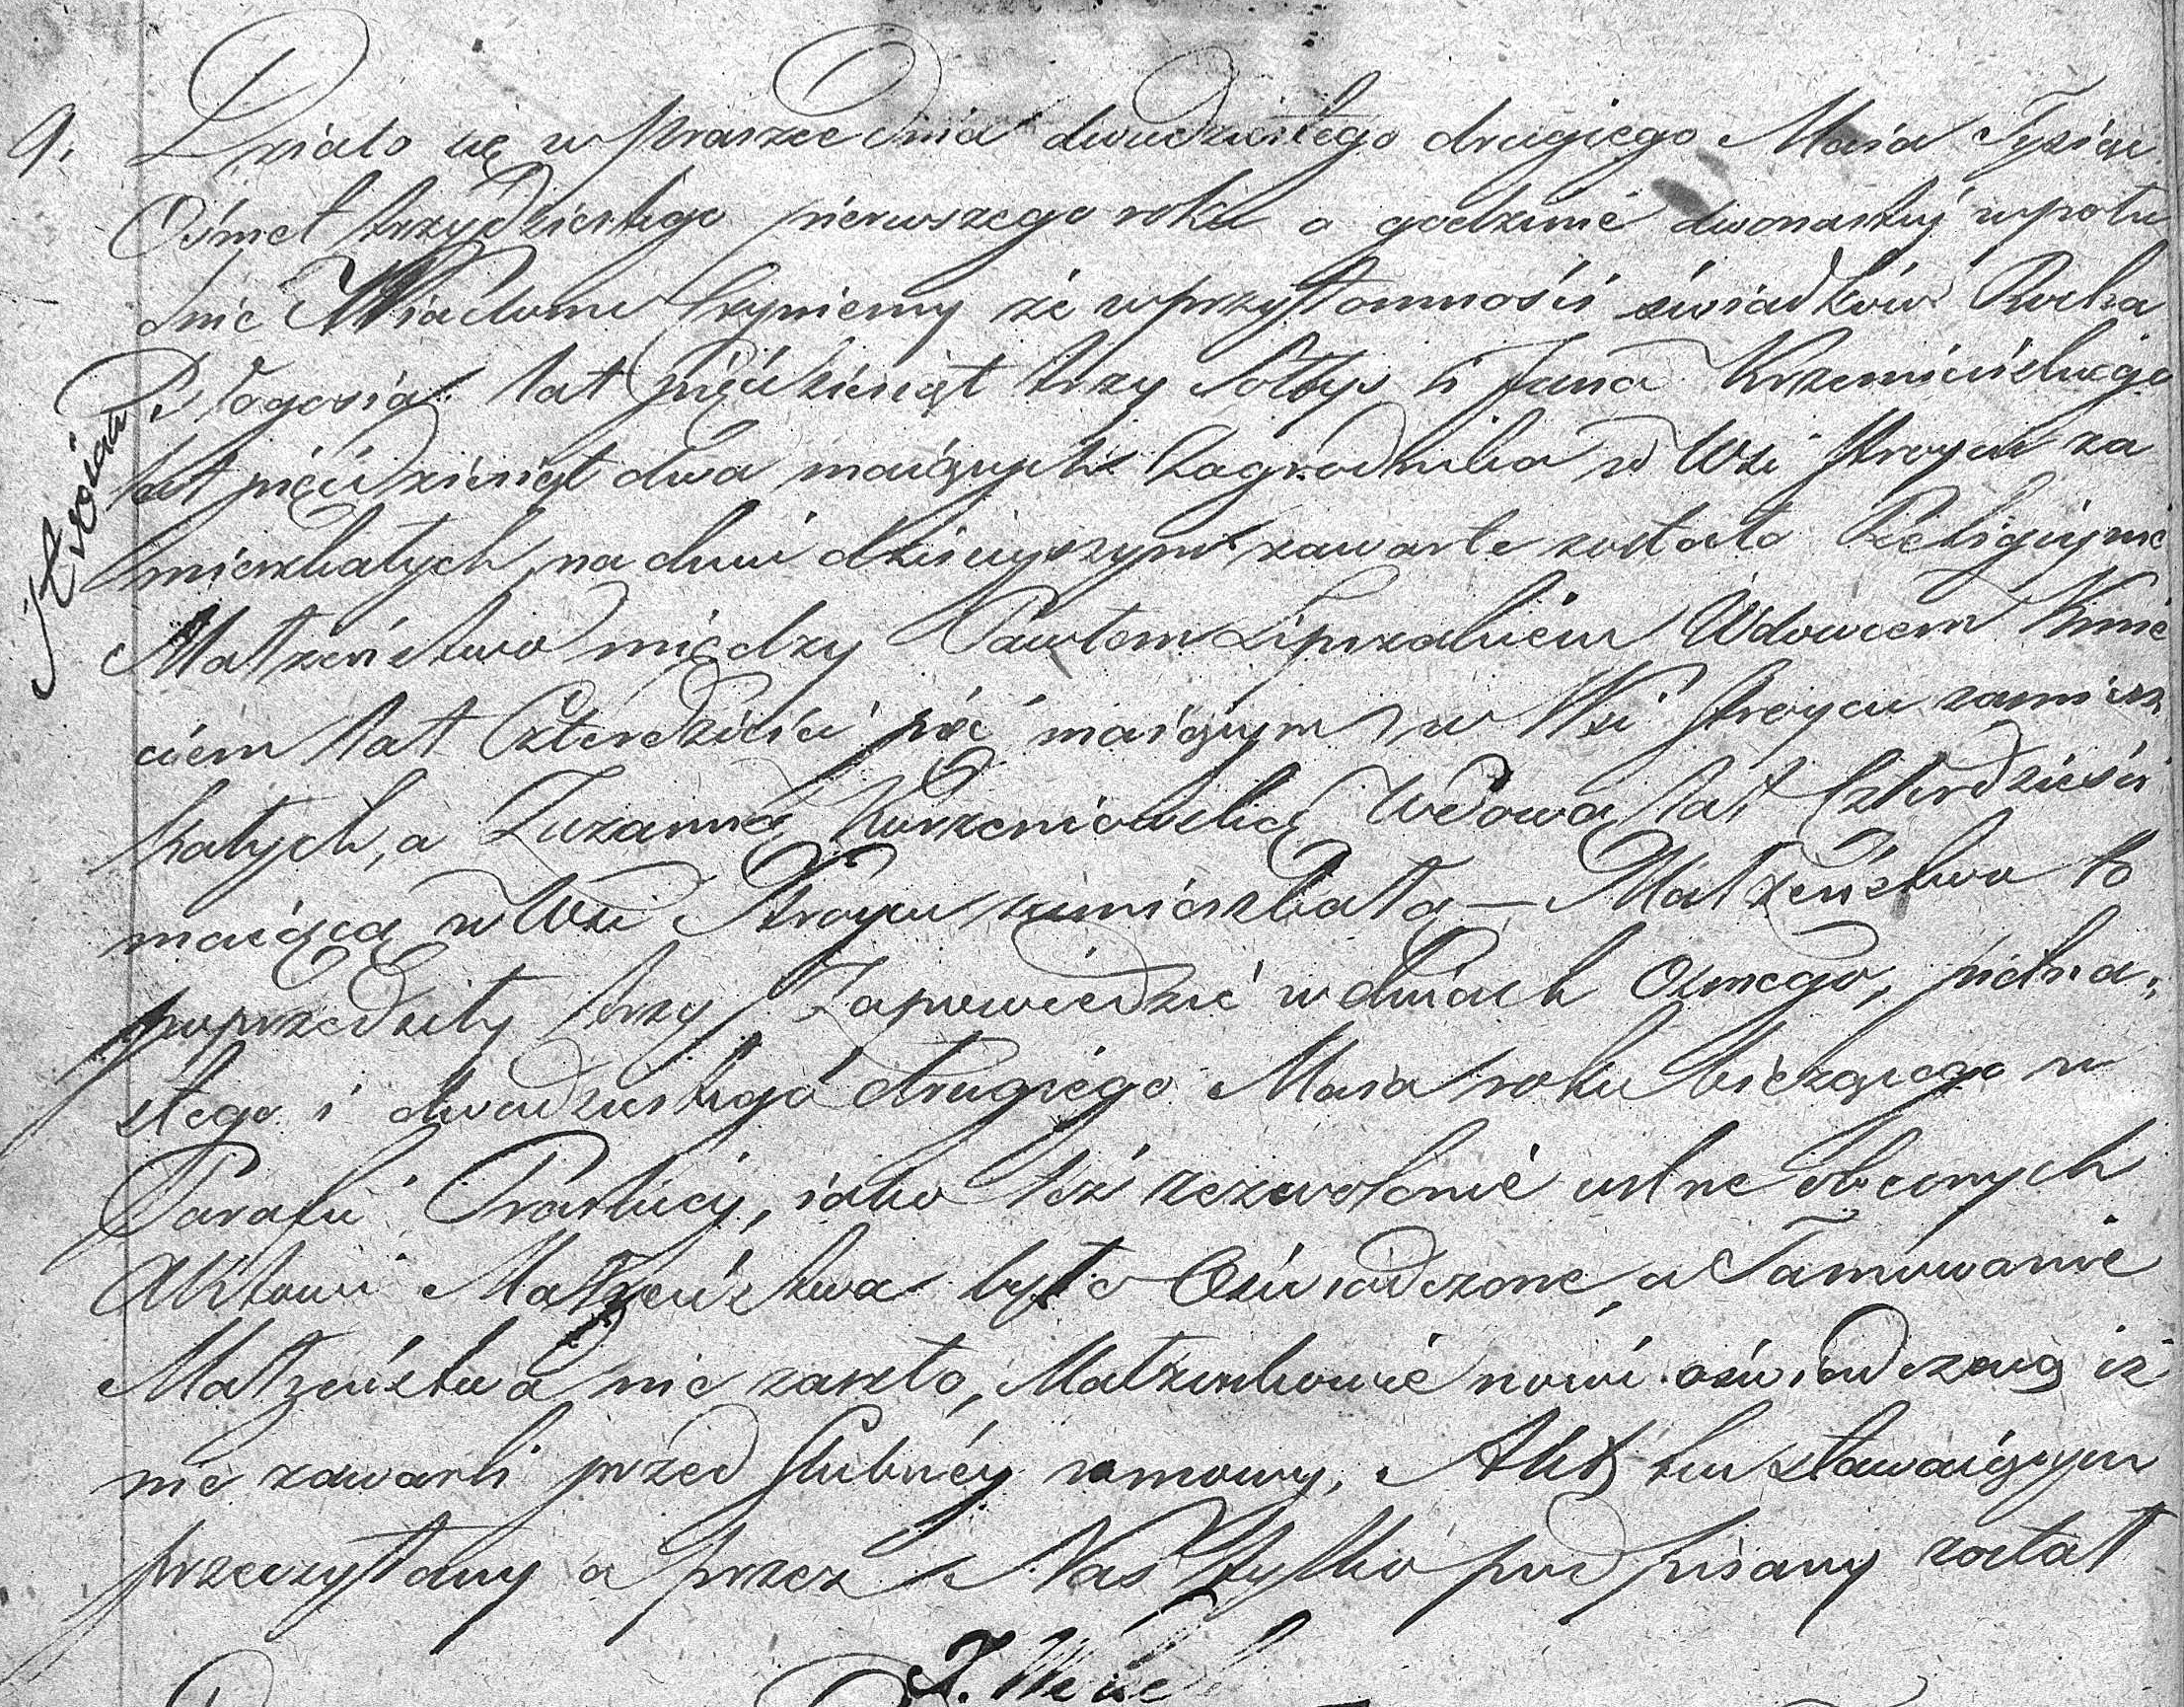 9. Działo się w Praszce Dnia dwudziestego drugiego Maia Tysiąc
Ośmset trzydziestego pierwszego roku o godzinie dwonastéj wpołu
dnie Wiadomo Czyniemy że wprzytomności świadków Rocha
lat pięćdziesiąt trzy Sołtys i Jana
lat pięćdziesiąt dwa maiących Zagrodnika w Wsi Stroycu za
mieszkałych, na dniu dzisieyszym zawarte zostało Religiyne
Małżeństwo między Pawłem Wdowcem Kmie
ciem lat Czterdzieści pięć maiącym w Wsi Stroycu zamiesz
kałych, a Zuzanną Korzeniowską Wdową lat Czterdzieści
maiącą w Wsi Stroycu zamieszkałą — Małżeństwo to
poprzedziły trzy Zapowiedzie w dniach Osmego, pietna„
stego i dwudziestego drugiego Maia roku bieżącego w
Parafii Praskiey, iako też zezwolenie ustne obecnych
Aktowi Małżeństwa było Oświadczone, a Tamowanie
Małżeństwa nie zaszło, Małżonkowie nowi oświadczaią iż
nie zawarli przed Slubnéy umowy, Akt ten stawaiącym
przeczytany a przez Nas tylko podpisany został